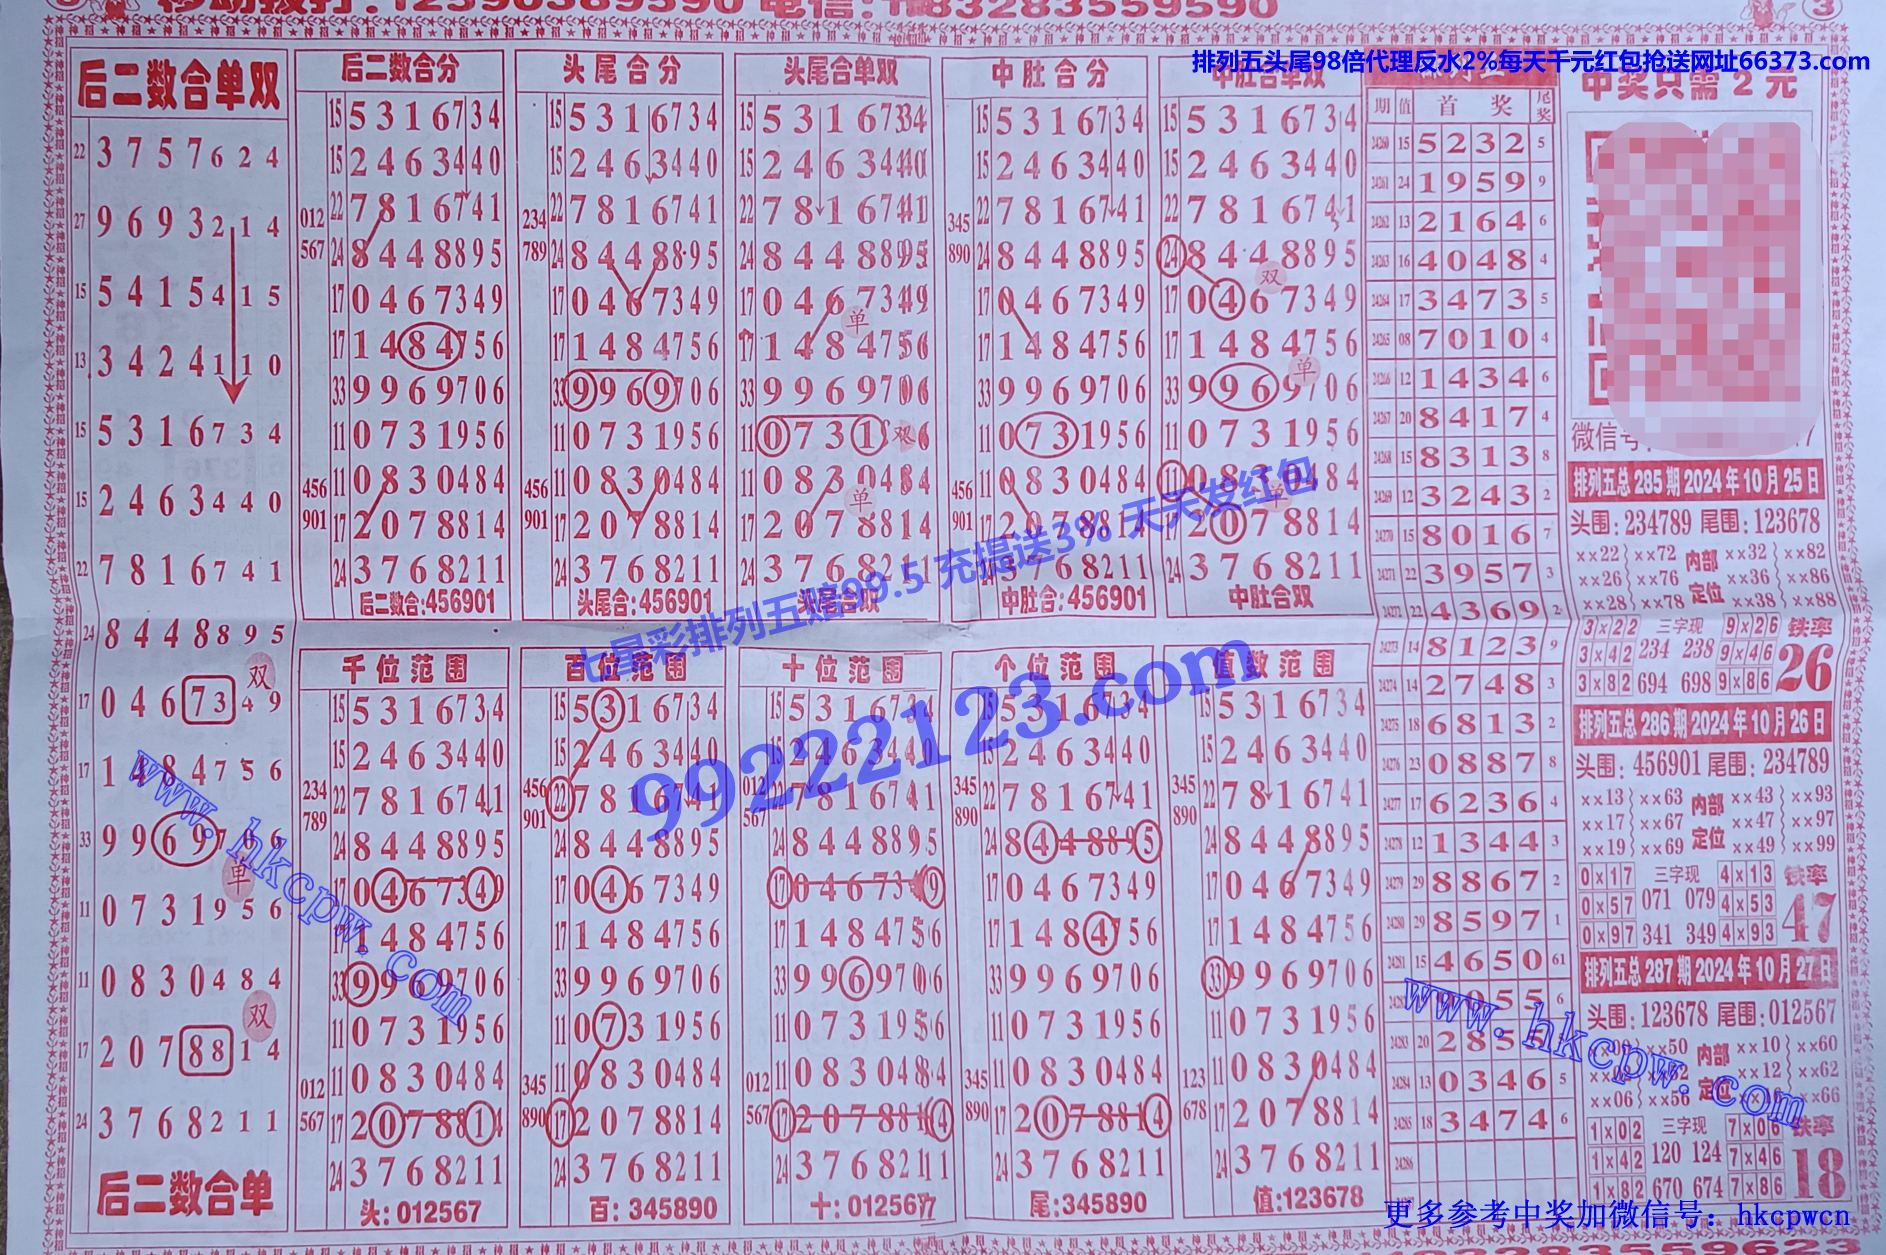 排列五头尾98倍代理反水2%每天千元红包抢送网址66373.com
中奖只需 2 元
后二数合单双
22 3 7 5 7 6 2 4
27 9 6 9 3 2 1 4
15 5 4 1 5 4 1 5
13 3 4 2 4 1 1 0
15 5 3 1 6 7 3 4
15 2 4 6 3 4 4 0
22 7 8 1 6 7 4 1
24 8 4 4 8 8 9 5
双
17 0 4 6 7 3 4 9
17 1 4 8 4 7 5 6
33 9 9 6 9 7 0 6
单
11 0 7 3 1 9 5 6
11 0 8 3 0 4 8 4
双
17 2 0 7 8 8 1 4
24 3 7 6 8 2 1 1
后二数合单
后二数合分
15 5 3 1 6 7 3 4
15 2 4 6 3 4 4 0
012 22 7 8 1 6 7 4 1
567 24 8 4 4 8 8 9 5
17 0 4 6 7 3 4 9
17 1 4 8 4 7 5 6
33 9 9 6 9 7 0 6
11 0 7 3 1 9 5 6
456 11 0 8 3 0 4 8 4
901 17 2 0 7 8 8 1 4
24 3 7 6 8 2 1 1
后二数合:456901
头尾合分
15 5 3 1 6 7 3 4
15 2 4 6 3 4 4 0
234 22 7 8 1 6 7 4 1
789 24 8 4 4 8 8 9 5
17 0 4 6 7 3 4 9
17 1 4 8 4 7 5 6
33 9 9 6 9 7 0 6
11 0 7 3 1 9 5 6
456 11 0 8 3 0 4 8 4
901 17 2 0 7 8 8 1 4
24 3 7 6 8 2 1 1
头尾合:456901
头尾合单双
15 5 3 1 6 7 3 4
15 2 4 6 3 4 4 0
22 7 8 1 6 7 4 1
24 8 4 4 8 8 9 5
17 0 4 6 7 3 4 9
单
17 1 4 8 4 7 5 6
33 9 9 6 9 7 0 6
11 0 7 3 1 双 6
11 0 8 3 0 4 8 4
单
17 2 0 7 8 8 1 4
24 3 7 6 8 2 1 1
头尾合双
中肚合分
15 5 3 1 6 7 3 4
15 2 4 6 3 4 4 0
345 22 7 8 1 6 7 4 1
890 24 8 4 4 8 8 9 5
17 0 4 6 7 3 4 9
17 1 4 8 4 7 5 6
33 9 9 6 9 7 0 6
11 0 7 3 1 9 5 6
456 11 0 8 3 0 4 8 4
901 17 2 0 7 8 8 1 4
24 3 7 6 8 2 1 1
中肚合:456901
中肚合单双
15 5 3 1 6 7 3 4
15 2 4 6 3 4 4 0
22 7 8 1 6 7 4 1
24 8 4 4 8 8 9 5
双
17 0 4 6 7 3 4 9
17 1 4 8 4 7 5 6
单
33 9 9 6 9 7 0 6
11 0 7 3 1 9 5 6
11 0 8 3 0 4 8 4
单
17 2 0 7 8 8 1 4
24 3 7 6 8 2 1 1
中肚合双
千位范围
15 5 3 1 6 7 3 4
15 2 4 6 3 4 4 0
234 22 7 8 1 6 7 4 1
789 24 8 4 4 8 8 9 5
17 0 4 6 7 3 4 9
17 1 4 8 4 7 5 6
33 9 9 6 9 7 0 6
11 0 7 3 1 9 5 6
012 11 0 8 3 0 4 8 4
567 17 2 0 7 8 8 1 4
24 3 7 6 8 2 1 1
头:012567
百位范围
15 5 3 1 6 7 3 4
15 2 4 6 3 4 4 0
456 22 7 8 1 6 7 4 1
901 24 8 4 4 8 8 9 5
17 0 4 6 7 3 4 9
17 1 4 8 4 7 5 6
33 9 9 6 9 7 0 6
11 0 7 3 1 9 5 6
345 11 0 8 3 0 4 8 4
890 17 2 0 7 8 8 1 4
24 3 7 6 8 2 1 1
百:345890
十位范围
15 5 3 1 6 7 3 4
15 2 4 6 3 4 4 0
012 22 7 8 1 6 7 4 1
567 24 8 4 4 8 8 9 5
17 0 4 6 7 3 4 9
17 1 4 8 4 7 5 6
33 9 9 6 9 7 0 6
11 0 7 3 1 9 5 6
012 11 0 8 3 0 4 8 4
567 17 2 0 7 8 8 1 4
24 3 7 6 8 2 1 1
十:012567
个位范围
15 5 3 1 6 7 3 4
15 2 4 6 3 4 4 0
345 22 7 8 1 6 7 4 1
890 24 8 4 4 8 8 9 5
17 0 4 6 7 3 4 9
17 1 4 8 4 7 5 6
33 9 9 6 9 7 0 6
11 0 7 3 1 9 5 6
345 11 0 8 3 0 4 8 4
890 17 2 0 7 8 8 1 4
24 3 7 6 8 2 1 1
尾:345890
值数范围
15 5 3 1 6 7 3 4
15 2 4 6 3 4 4 0
345 22 7 8 1 6 7 4 1
890 24 8 4 4 8 8 9 5
17 0 4 6 7 3 4 9
17 1 4 8 4 7 5 6
33 9 9 6 9 7 0 6
11 0 7 3 1 9 5 6
123 11 0 8 3 0 4 8 4
678 17 2 0 7 8 8 1 4
24 3 7 6 8 2 1 1
值:123678
期 值 首奖 尾奖
24260 15 5 2 3 2 5
24261 24 1 9 5 9 9
24262 13 2 1 6 4 6
24263 16 4 0 4 8 4
24264 17 3 4 7 3 5
24265 08 7 0 1 0 4
24266 12 1 4 3 4 6
24267 20 8 4 1 7 4
24268 15 8 3 1 3 8
24269 12 3 2 4 3 2
24270 15 8 0 1 6 7
24271 22 3 9 5 7 3
24272 22 4 3 6 9 2
24273 14 8 1 2 3 9
24274 14 2 7 4 8 3
24275 18 6 8 1 3 2
24276 23 0 8 8 7 8
24277 17 6 2 3 6 4
24278 12 1 3 4 4 3
24279 29 8 8 6 7 2
24280 29 8 5 9 7 1
24281 15 4 6 5 0 61
24283 20 2 8 5
24284 13 0 3 4 6 5
24285 18 3 4 7 4 6
24286
微信号
排列五总 285 期 2024 年 10 月 25 日
头围:234789 尾围:123678
××22 ××72 内部 ××32 ××82
××26 ××76 ××36 ××86
××28 ××78 定位 ××38 ××88
3×22 三字现 9×26 铁率
3×42 234 238 9×46 26
3×82 694 698 9×86
排列五总 286 期 2024 年 10 月 26 日
头围:456901 尾围:234789
××13 ××63 内部 ××43 ××93
××17 ××67 ××47 ××97
××19 ××69 定位 ××49 ××99
0×17 三字现 4×13 铁率
0×57 071 079 4×53 47
0×97 341 349 4×93
排列五总 287 期 2024 年 10 月 27 日
头围:123678 尾围:012567
××50 内部 ××10 ××60
××12 ××62
××06 ××56 定位 ××16 ××66
1×02 三字现 7×06 铁率
1×42 120 124 7×46 18
1×82 670 674 7×86
七星彩排列五赔99.5 充提送3% 天天发红包
99222123.com
www.hkcpw.com
www.hkcpw.com
更多参考中奖加微信号：hkcpwcn